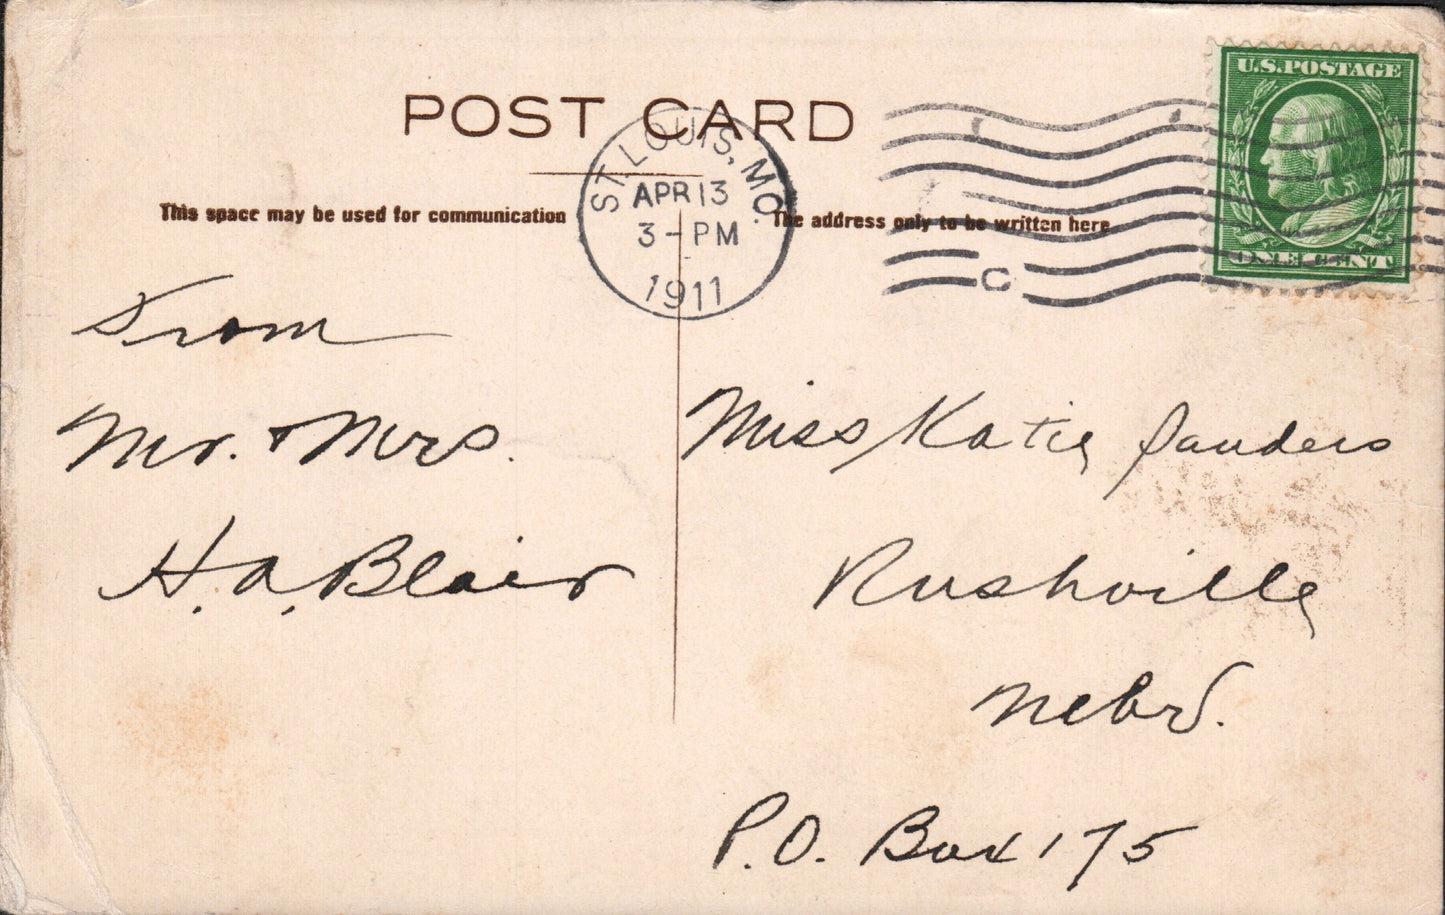 POST CARD
U.S.POSTAGE
ONE CENT
ST. LOUIS, MO.
APR 13
3-PM
1911
C
This space may be used for communication
The address only to be written here
From
Mr. & Mrs.
H. A. Blair
Miss Katie Sanders
Rushville
Nebr.
P.O. Box 175